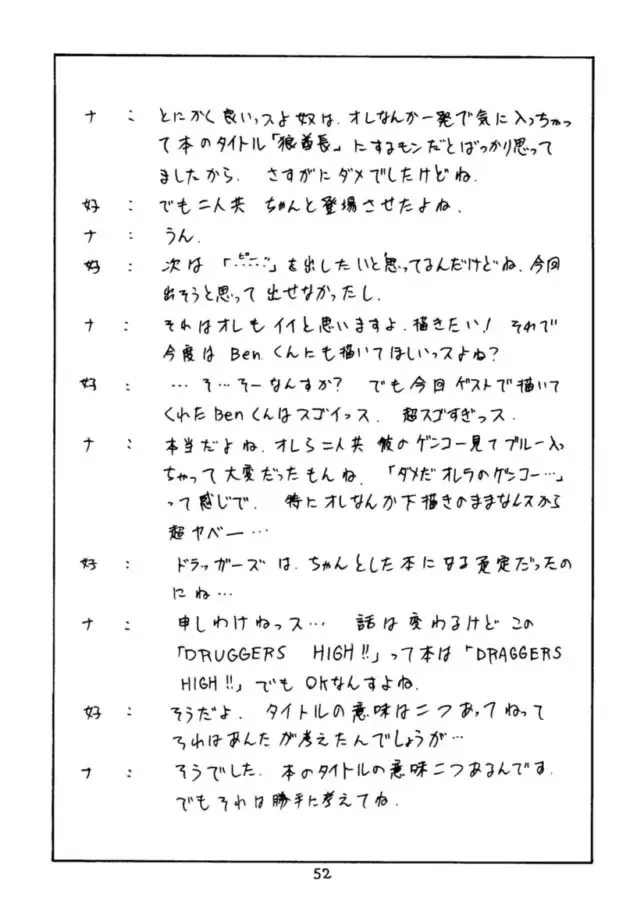 ナ : とにかく良いっスよ奴は、オレなんか一発で気に入っちゃっ
て本のタイトル「狼酋長」にするモンだとばっかり思って
ましたから. さすがにダメでしたけどね.
好 : でも二人共 ちゃんと登場させたよね.
ナ : うん.
好 : 次は「ピー」を出したいと思ってるんだけどね、今回
出そうと思って出せなかったし.
ナ : それはオレもイイと思いますよ.描きたい! それで
今度は Ben くんにも描いてほしいっスよね?
好 : …そ…そーなんすか? でも今回ゲストで描いて
くれた Ben くんはスゴイっス. 超スゴすぎっス.
ナ : 本当だよね.オレら二人共 彼のゲンコー見てブルー入っ
ちゃって大変だったもんね.「ダメだオレラのゲンコー…」
って感じで. 特にオレなんか下描きのままなんスから
超ヤベー…
好 : ドラッガーズは、ちゃんとした本になる予定だったの
にね…
ナ : 申しわけねっス… 話は変わるけどこの
「DRUGGERS HIGH!!」って本は「DRAGGERS
HIGH!!」でも OKなんすよね.
好 : そうだよ. タイトルの意味は二つあってねって
それはあんたが考えたんでしょうが…
ナ : そうでした. 本のタイトルの意味二つあるんです.
でもそれは勝手に考えてね.
52